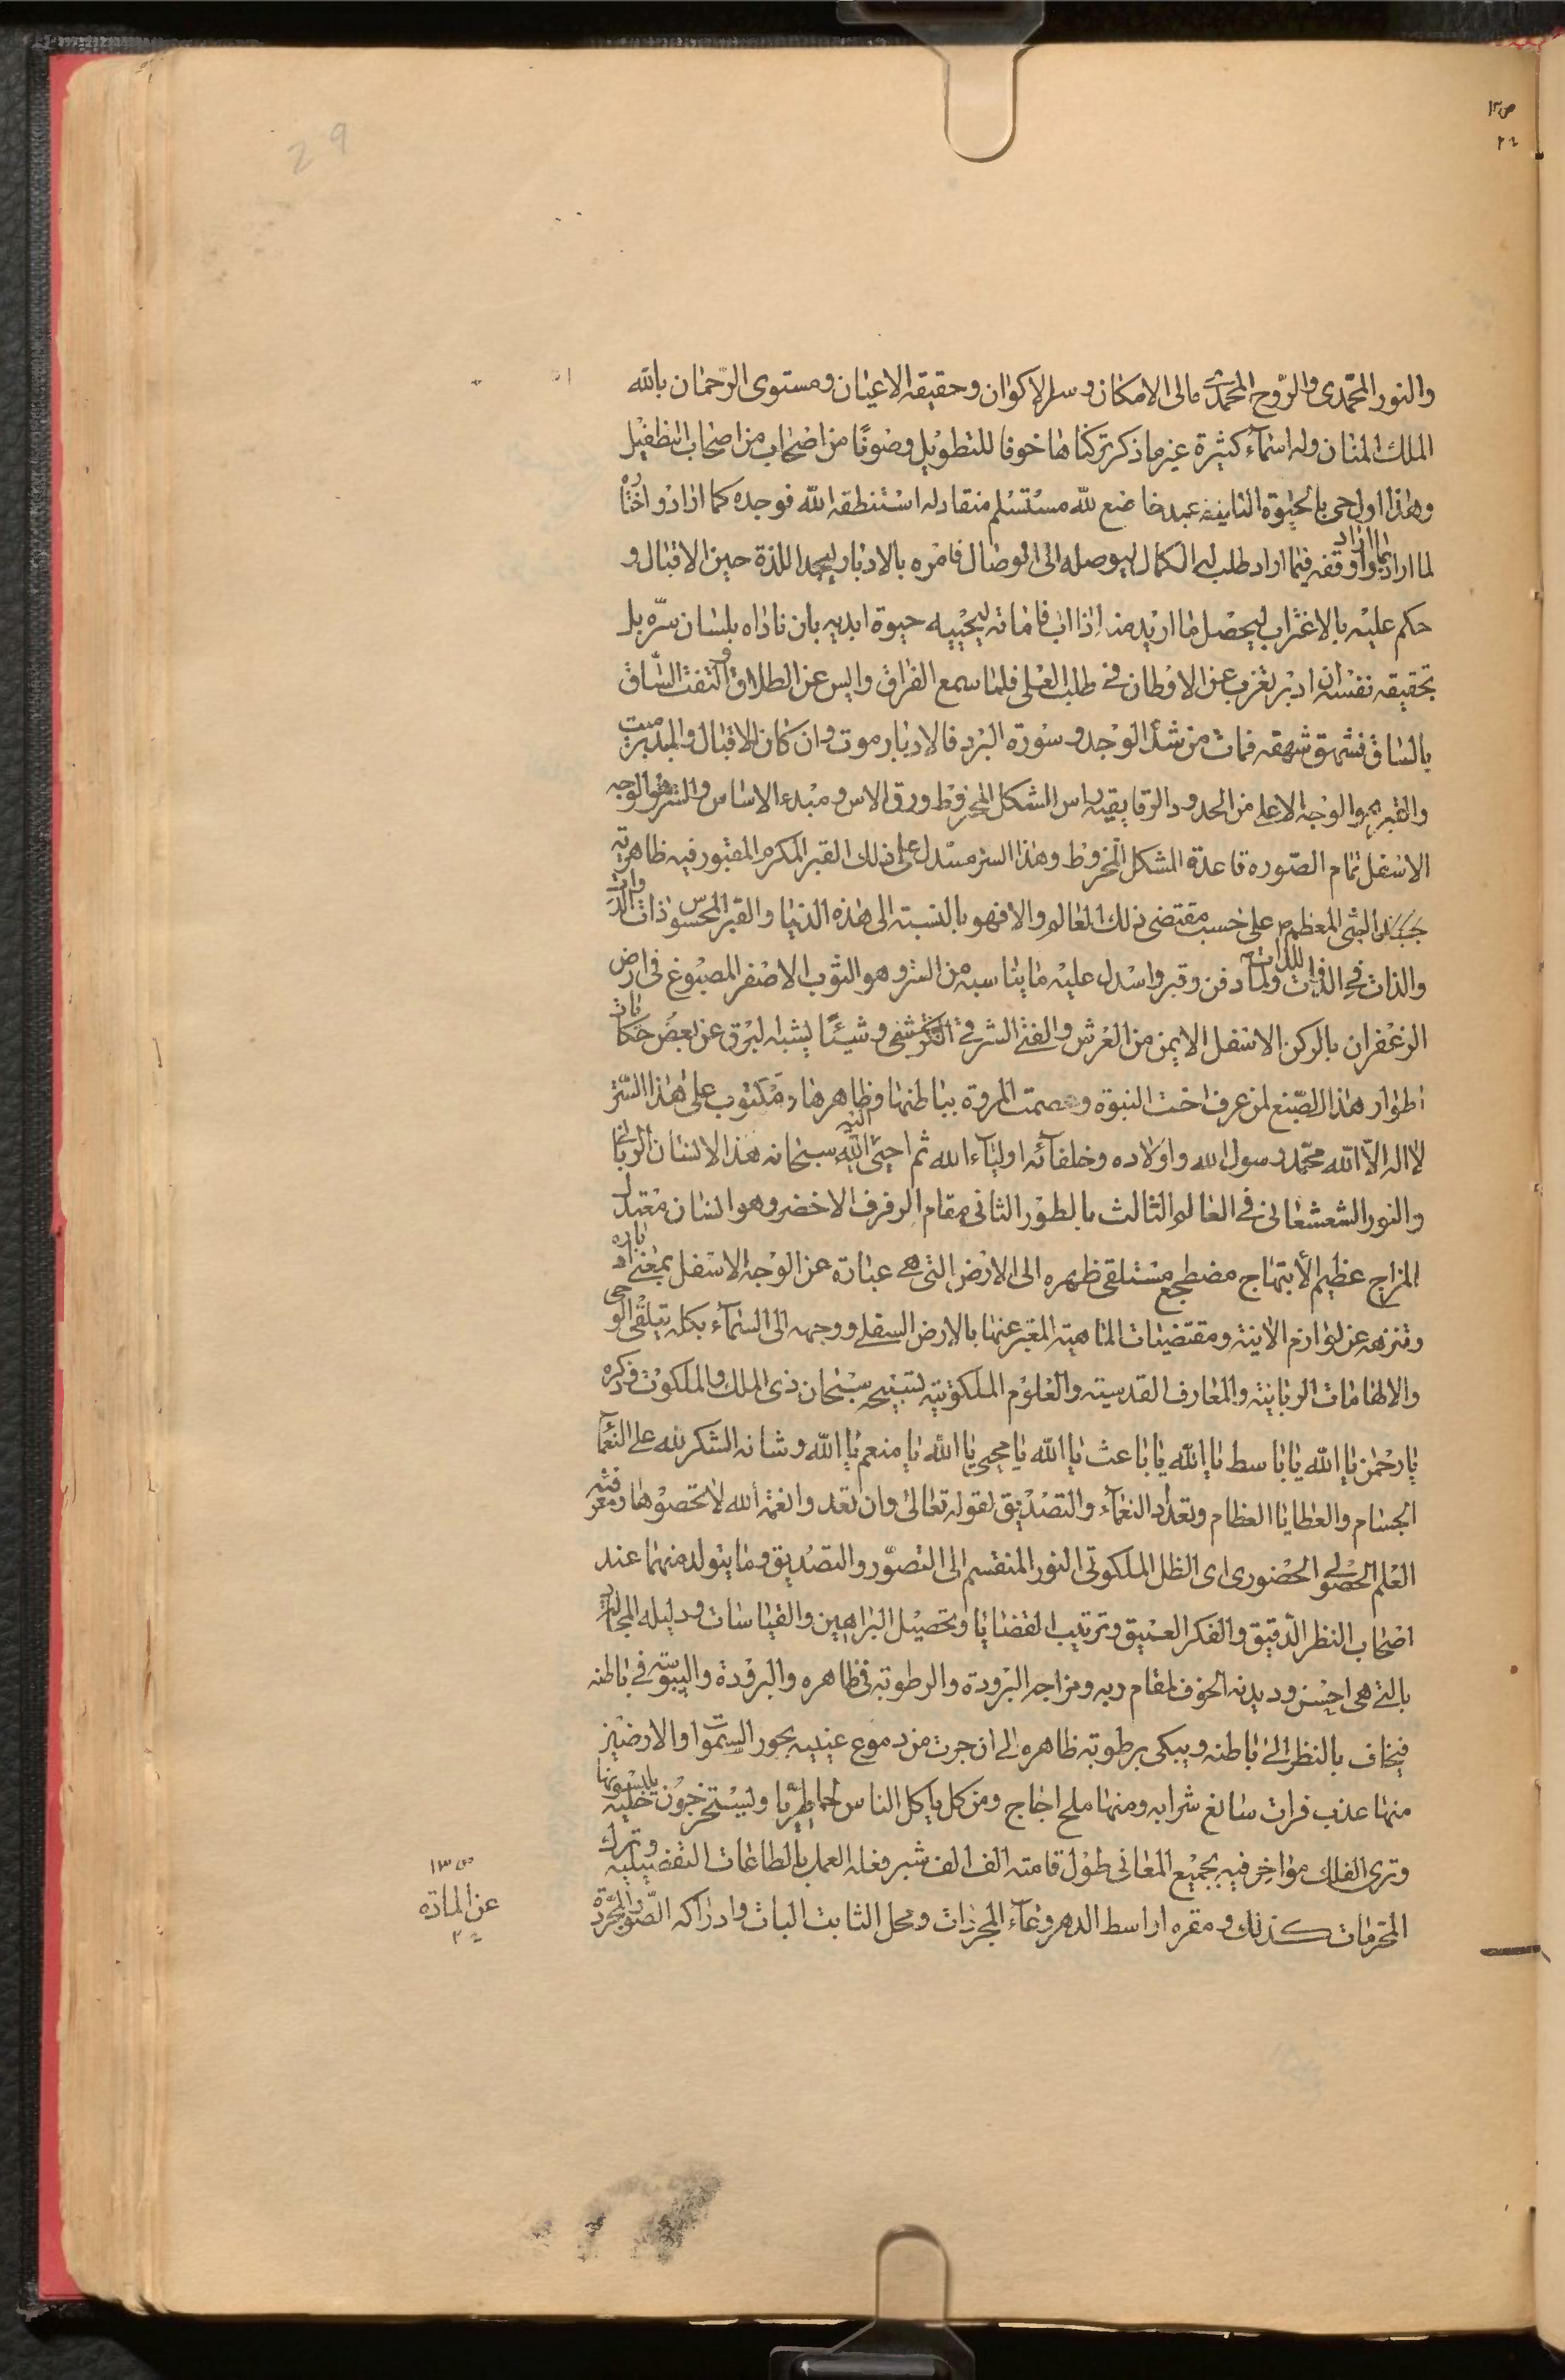 29
والنور المحمّدى والروح المحمّدى مالى الامكان وسر الاكوان وحقيقة الاعيان ومستوى الرّحمان بالله
الملك المنان وله اسمآء كثيرة غير ما ذكر تركناها خوفا للتطويل وصونًا من اضحاب من اصحاب التطفيل
وهذا اول حى بالحيوة الثانيه عبد خاضع لله مستسلم منقاد له استنطقه الله فوجده كما اراد واختاره
لما اراد بما اراد واوقفه فيما اراد طلب له الكمال ليوصله الى الوصال فامره بالادبار ليجد اللذة حين الاقبال و
حكم عليه بالاغتراب ليحصل ما اريد منه اذا اب فاماته ليحييه حيوة ابديه بان ناداه بلسان سرّه بل
بحقيقه نفسه ان ادبر تغرب عن الاوطان فى طلب العلى فلما سمع الفراق وايس عن الطلاق والتفت السّاق
بالساق فشهق شهقه فمات من شدّ الوجد وسورة البرد فالادبار موت وان كان الاقبال والمدبر ميت
والقبر هو الوجه الاعلى من الحدود الرقايقيه راس الشكل المخروط ورق الاس ومبدء الاساس والستر هو الوجه
الاسفل تمام الصّوره قاعدة الشكل المخروط وهذا الستر مسدل على ذلك القبر المكرم المقبور فيه ظاهرية
جسد النبى المعظم ص على حسب مقتضى ذلك العالم والا فهو بالنسبة الى هذه الدنيا والقبر المحسوس ذات الذوات
والذات فى الذوات للذات ولما دفن وقبر واسدل عليه ما يناسبه من الستر وهو الثوب الاصفر المصبوغ فى ارض
الزعفران بالركن الاسفل الايمن من العرش والفتى الشرقى وشيئًا يشبه البرق عن بعض حكايات
اطوار هذا الصّنع لمن عرف اخت النبوة وعصمت المروة بباطنها وظاهرها ومكتوب على هذا السّتر
لا اله الّا الله محمّد رسول الله واولاده وخلفآئه اوليآء الله ثم احيى الله سبحانه هذا الانسان الربانى
والنور الشعشعانى فى العالم الثالث بالطور الثانى مقام الرفرف الاخضر وهو انسان معتدل
المزاج عظيم الابتهاج مضطجع مستلقى ظهره الى الارض التى هى عبارة عن الوجه الاسفل بمعنى ادباره
وتنزهه عن لوازم الانية ومقتضيات الماهية المعبر عنها بالارض السفلى ووجهه الى السمآء بكله يتلقى الوحى
والالهامات الربانية والمعارف القدسيته والعلوم الملكوتيته تسبيحه سبحان ذى الملك والملكوت وذكره
يا رحمن يا الله يا باسط يا الله يا باعث يا الله يا محيى يا الله يا منعم يا الله وشانه الشكر لله على النعمآ
الجسام والعطايا العظام وتعداد النعمآء والتصديق لقوله تعالى وان تعدوا نعمة الله لا تحصوها ومعرفته
العلم الحصولى الحضورى اى الظل الملكوتى النور المنقسم الى التصوّر والتصديق وما يتولد منهما عند
اضحاب النظر الدّقيق والفكر العميق وترتيب القضايا وتحصيل البراهين والقياسات ودليله المجادلة
بالتى هى احسن وديدنه الخوف لمقام ربه ومزاجه البرودة والرطوبة فى ظاهره والبرودة واليبوسة فى باطنه
فيخاف بالنظر الى باطنه ويبكى برطوبة ظاهره الى ان جرت من دموع عينيه بحور السموات والارضين
منها عذب فرات سائغ شرابه ومنها ملح اجاج ومن كل ياكل الناس لحما طريّا ويستخرجون حليه يلبسونها
وترى الفلك مواخر فيه بجميع المعانى طول قامته الف الف شبر وفعله العمل بالطاعات التفصيليه وترك
المحرمات كذلك ومقره اواسط الدهر وعآء المجردات ومحل الثابت البات وادراكه الصّور المجردة
ص ١٣
عن المادّه